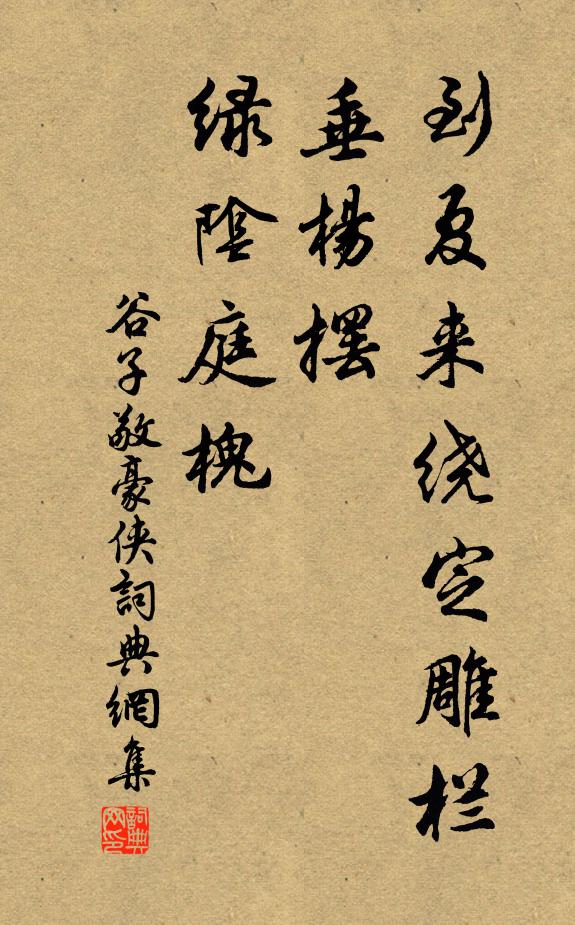 到夏来绕定雕栏
垂楊擺
緑陰庭槐
谷子敬豪侠詞典網集
詞典网印